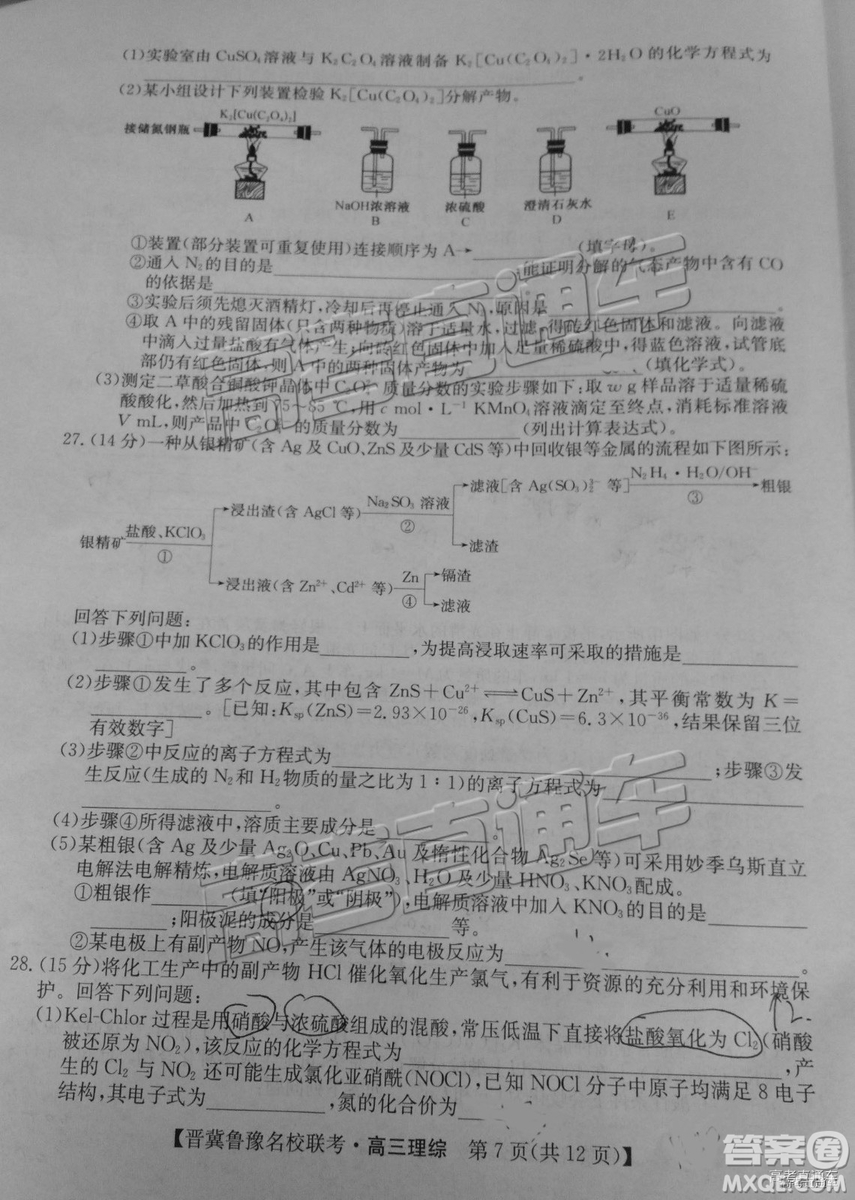 (1)实验室由 CuSO₄ 溶液与 K₂C₂O₄ 溶液制备 K₂[Cu(C₂O₄)₂]·2H₂O 的化学方程式为
________________。
(2)某小组设计下列装置检验 K₂[Cu(C₂O₄)₂]分解产物。
K₂[Cu(C₂O₄)₂]
CuO
接储氮钢瓶
NaOH浓溶液 浓硫酸 澄清石灰水
A B C D E
①装置(部分装置可重复使用)连接顺序为 A→________(填字母)。
②通入 N₂ 的目的是________________,能证明分解的气态产物中含有 CO
的依据是________________。
③实验后须先熄灭酒精灯,冷却后再停止通入 N₂,原因是________________。
④取 A 中的残留固体(只含两种物质)溶于适量水,过滤,得砖红色固体和滤液。向滤液
中滴入过量盐酸有气体产生;向砖红色固体中加入足量稀硫酸,得蓝色溶液,试管底
部仍有红色固体,则 A 中的两种固体产物为________________(填化学式)。
(3)测定二草酸合铜酸钾晶体中 C₂O₄²⁻ 质量分数的实验步骤如下:取 w g 样品溶于适量稀硫
酸酸化,然后加热到 75~85 ℃,用 c mol·L⁻¹ KMnO₄溶液滴定至终点,消耗标准溶液
V mL,则产品中 C₂O₄²⁻ 的质量分数为________________(列出计算表达式)。
27.(14 分)一种从银精矿(含 Ag 及 CuO、ZnS 及少量 CdS 等)中回收银等金属的流程如下图所示:
滤液[含 Ag(SO₃)₂³⁻ 等] N₂H₄·H₂O/OH⁻ ③ 粗银
浸出渣(含 AgCl 等) Na₂SO₃ 溶液 ②
滤渣
银精矿 盐酸、KClO₃ ①
浸出液(含 Zn²⁺、Cd²⁺ 等) Zn ④ 镉渣
滤液
回答下列问题:
(1)步骤①中加 KClO₃的作用是________,为提高浸取速率可采取的措施是________
________。
(2)步骤①发生了多个反应,其中包含 ZnS+Cu²⁺⇌CuS+Zn²⁺,其平衡常数为 K=
________。[已知:Kₛₚ(ZnS)=2.93×10⁻²⁶,Kₛₚ(CuS)=6.3×10⁻³⁶,结果保留三位
有效数字]
(3)步骤②中反应的离子方程式为________________;步骤③发
生反应(生成的 N₂和 H₂物质的量之比为 1∶1)的离子方程式为________
________________。
(4)步骤④所得滤液中,溶质主要成分是________________。
(5)某粗银(含 Ag 及少量 Ag₂O、Cu、Pb、Au 及惰性化合物 Ag₂Se 等)可采用妙季乌斯直立
电解法电解精炼,电解质溶液由 AgNO₃、H₂O 及少量 HNO₃、KNO₃配成。
①粗银作________(填“阳极”或“阴极”),电解质溶液中加入 KNO₃的目的是________
________;阳极泥的成分是________________等。
②某电极上有副产物 NO,产生该气体的电极反应为________________。
28.(15 分)将化工生产中的副产物 HCl 催化氧化生产氯气,有利于资源的充分利用和环境保
护。回答下列问题:
(1)Kel-Chlor 过程是用硝酸与浓硫酸组成的混酸,常压低温下直接将盐酸氧化为 Cl₂(硝酸
被还原为 NO₂),该反应的化学方程式为________________,产
生的 Cl₂ 与 NO₂ 还可能生成氯化亚硝酰(NOCl),已知 NOCl 分子中原子均满足 8 电子
结构,其电子式为________,氮的化合价为________
【晋冀鲁豫名校联考·高三理综 第 7 页(共 12 页)】
高考直通车
高考直通车
答案圈
高考直通车
MXQE.COM